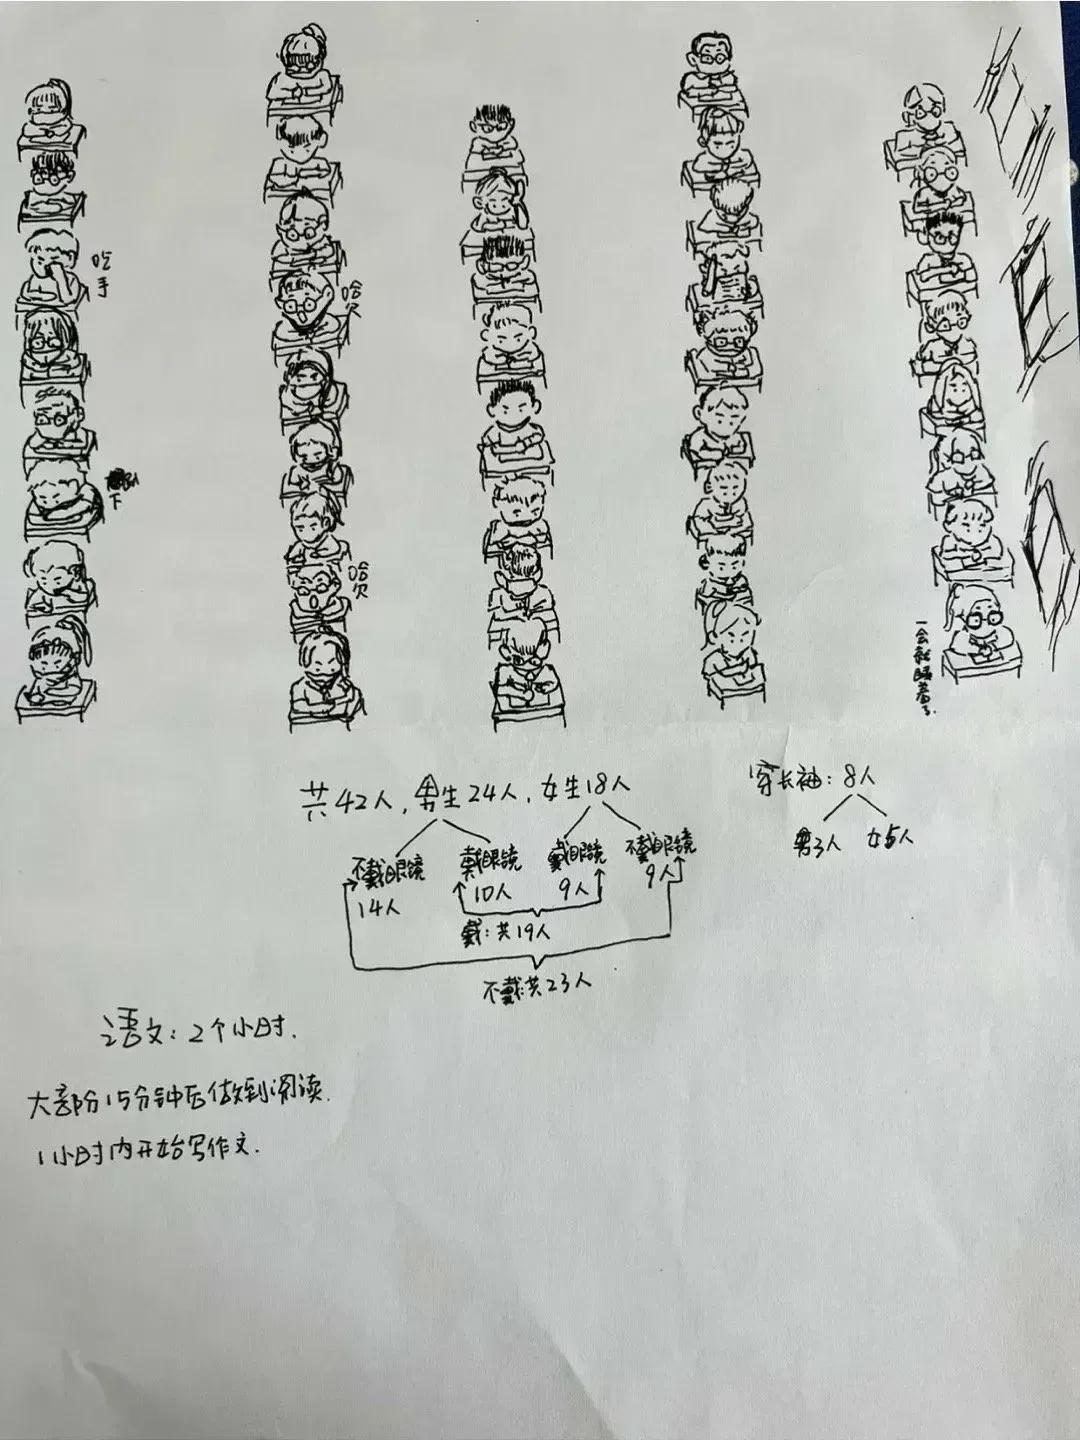 吃手
哈欠
哈欠
下
一会就睡着了.
共42人, 男生24人, 女生18人
穿长袖: 8人
男3人 女5人
不戴眼镜 戴眼镜 戴眼镜 不戴眼镜
14人 10人 9人 9人
戴: 共19人
不戴:共23人
语文: 2个小时.
大部分15分钟后做到阅读.
1小时内开始写作文.